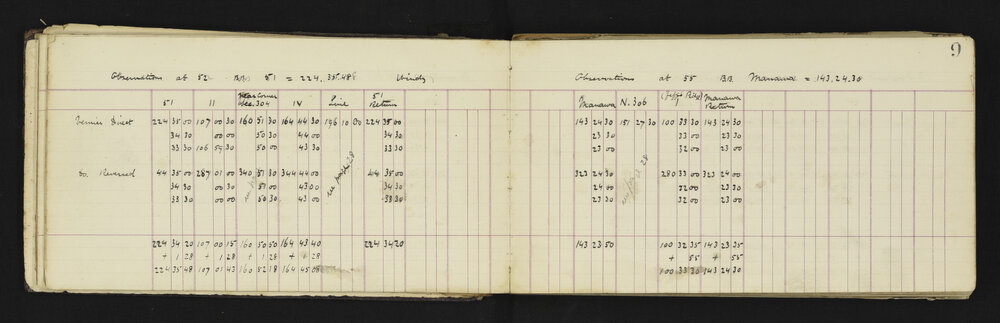 9
Observations at 52 BB 51 = 224.35.48 Windy
51 11 Sec. 304 IV Line 51 Return
Vernier Direct 224 35 00 107 00 30 160 51 30 164 44 30 196 10 00 224 35 00
34 30 00 00 50 30 44 00 34 30
33 30 106 59 30 50 00 43 30 33 30
Do Reversed 44 35 00 287 01 00 340 51 30 344 44 00 see page 28 44 35 00
34 30 00 30 51 00 43 00 34 30
33 30 00 00 50 30 43 00 33 30
224 34 20 107 00 15 160 50 50 164 43 40 224 34 20
+ 1 28 + 1 28 + 1 28 + 1 28
224 35 48 107 01 43 160 52 18 164 45 08
Observations at 55 BB Manawa = 143.24.30
Manawa N. 306 Manawa Return
143 24 30 151 27 30 100 33 30 143 24 30
23 30 33 00 23 30
23 00 32 00 23 00
323 24 30 28 280 33 00 323 24 00
24 00 32 00 23 30
23 30 32 00 23 30
143 23 50 100 32 35 143 23 35
+ 55 + 55
100 33 30 143 24 30